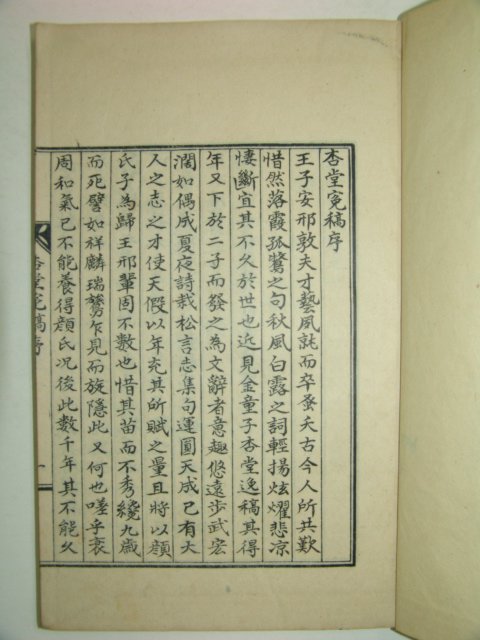 杏堂寃稿序
王子安邢敦夫才藝夙就而卒蚤夭古今人所共歎
惜然落霞孤鶩之句秋風白露之詞輕揚炫燿悲凉
悽斷宜其不久於世也近見金童子杏堂逸稿其得
年又下於二子而發之為文辭者意趣悠遠步武宏
濶如偶成夏夜詩栽松言志集句運圓天成已有大
人之志之才使天假以年充其所賦之量且將以顔
氏子為歸王邢輩固不數也惜其苗而不秀纔九歲
而死譬如祥麟瑞鷟乍見而旋隱此又何也嗟乎衰
周和氣已不能養得顔氏况後此數千年其不能久
杏堂寃稿序
一